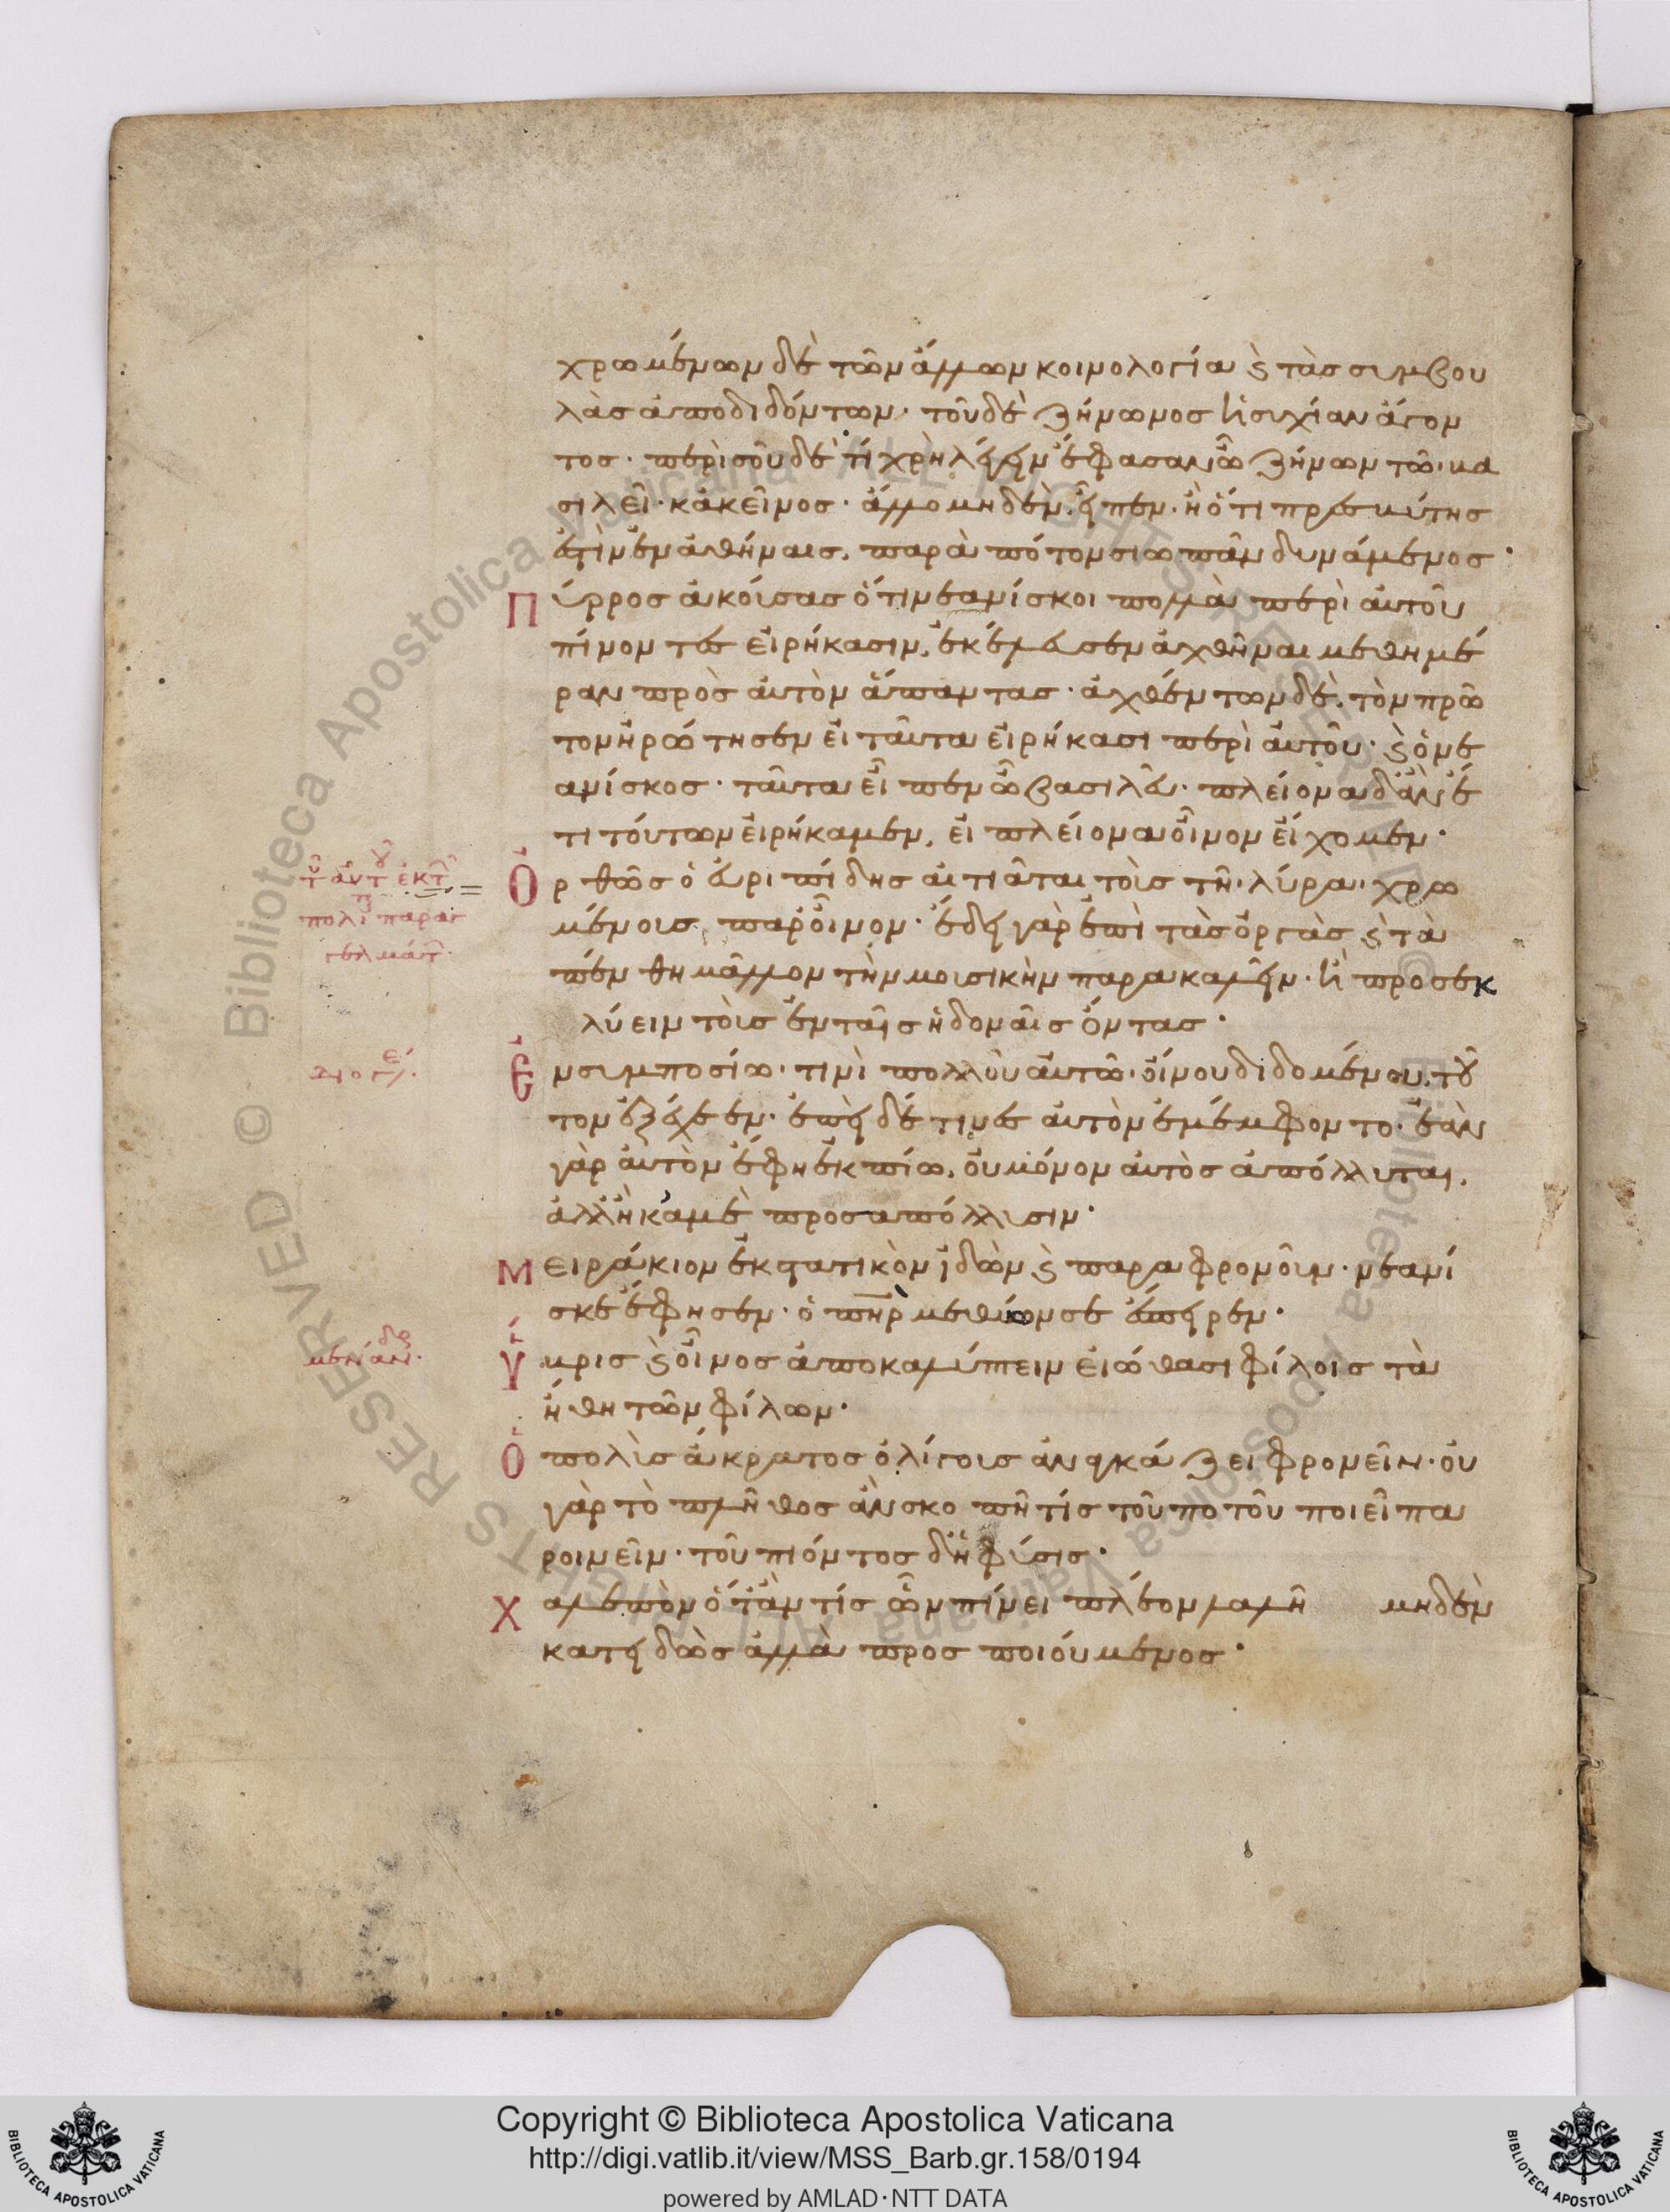 χρωμένων δὲ τῶν ἄλλων κοινολογία ϛ τὰσ συμβου
λὰσ ἀποδιδόντων· τοῦ δὲ ζήνωνοσ ἡσυχίαν ἄγον
τοσ· περὶ σοῦ δὲ τί χρὴ λέγειν ἔφασαν ὦ ζήνων τῶ βα
σιλεῖ· κἀκεῖνοσ· ἄλλο μηδὲν εἶπεν· ἢ ὅτι πρεσβύτησ
ἐστὶν ἐν ἀθήναισ, παρὰ πότον σιωπᾶν δυνάμενοσ·
Πύρροσ ἀκούσασ ὅτι νεανίσκοι πολλὰ περὶ αὐτοῦ
πίνοντεσ εἰρήκασιν, ἐκέλευσεν ἀχθῆναι μεθημέ
ραν πρὸσ αὐτὸν ἅπαντασ· ἀχθέντων δὲ, τὸν πρῶ
τον ἠρώτησεν εἰ ταῦτα εἰρήκασι περὶ αὐτοῦ· ϛ ὁ νε
ανίσκοσ· ταῦτα εἶπεν ὦ βασιλεῦ· πλείονα δ' ἂν ἔ
τι τούτων εἰρήκαμεν, εἰ πλείονα οἶνον εἴχομεν·
Ὀρθῶσ ὁ εὐριπίδησ αἰτιᾶται τοῖσ τῆ λύρα χρω
μένοισ παρ' οἶνον· ἔδει γὰρ ἐπὶ τὰσ ὀργὰσ ϛ τὰ
πένθη μᾶλλον τὴν μουσικὴν παρακαλεῖν· ἢ προσεκ
λύειν τοῖσ ἐν ταῖσ ἡδοναῖσ ὄντασ·
Ἐν συμποσίω· τινὶ πολλοῦ αὐτῶ οἴνου διδομένου, τοῦ
τον ἐξέχεεν· ἐπεὶ δέ τινεσ αὐτὸν ἐμέμφοντο· ἐὰν
γὰρ αὐτὸν ἔφη ἐκπίω, οὐ μόνον αὐτὸσ ἀπόλλυται,
ἀλλὴ κἀμὲ προσαπόλλυσιν·
Μειράκιον ἐκστατικὸν ἰδὼν ϛ παραφρονοῦν· νεανί
σκε ἔφησεν· ὁ πηρ μεθύων σε ἔσπειρεν·
Ὕβρισ ϛ οἶνοσ ἀποκαλύπτειν εἰώθασι φίλοισ τὰ
ἤθη τῶν φίλων·
Ὁ πολὺσ ἄκρατοσ ὀλίγοισ ἀναγκάζει φρονεῖν· οὐ
γὰρ τὸ πλῆθοσ ἂν σκοπῆ τίσ τοῦ ποτοῦ ποιεῖ πα
ροινεῖν· τοῦ πιόντοσ δ' ἡ φύσισ·
Χαλεπὸν ὅταν τίσ ὧν πίνει πλέον λαλῆ μηδὲν
κατειδὼσ ἀλλὰ προσποιούμενοσ·
μενάν δρ·
Copyright © Biblioteca Apostolica Vaticana
http://digi.vatlib.it/view/MSS_Barb.gr.158/0194
powered by AMLAD · NTT DATA
BIBLIOTECA APOSTOLICA VATICANA
BIBLIOTECA APOSTOLICA VATICANA